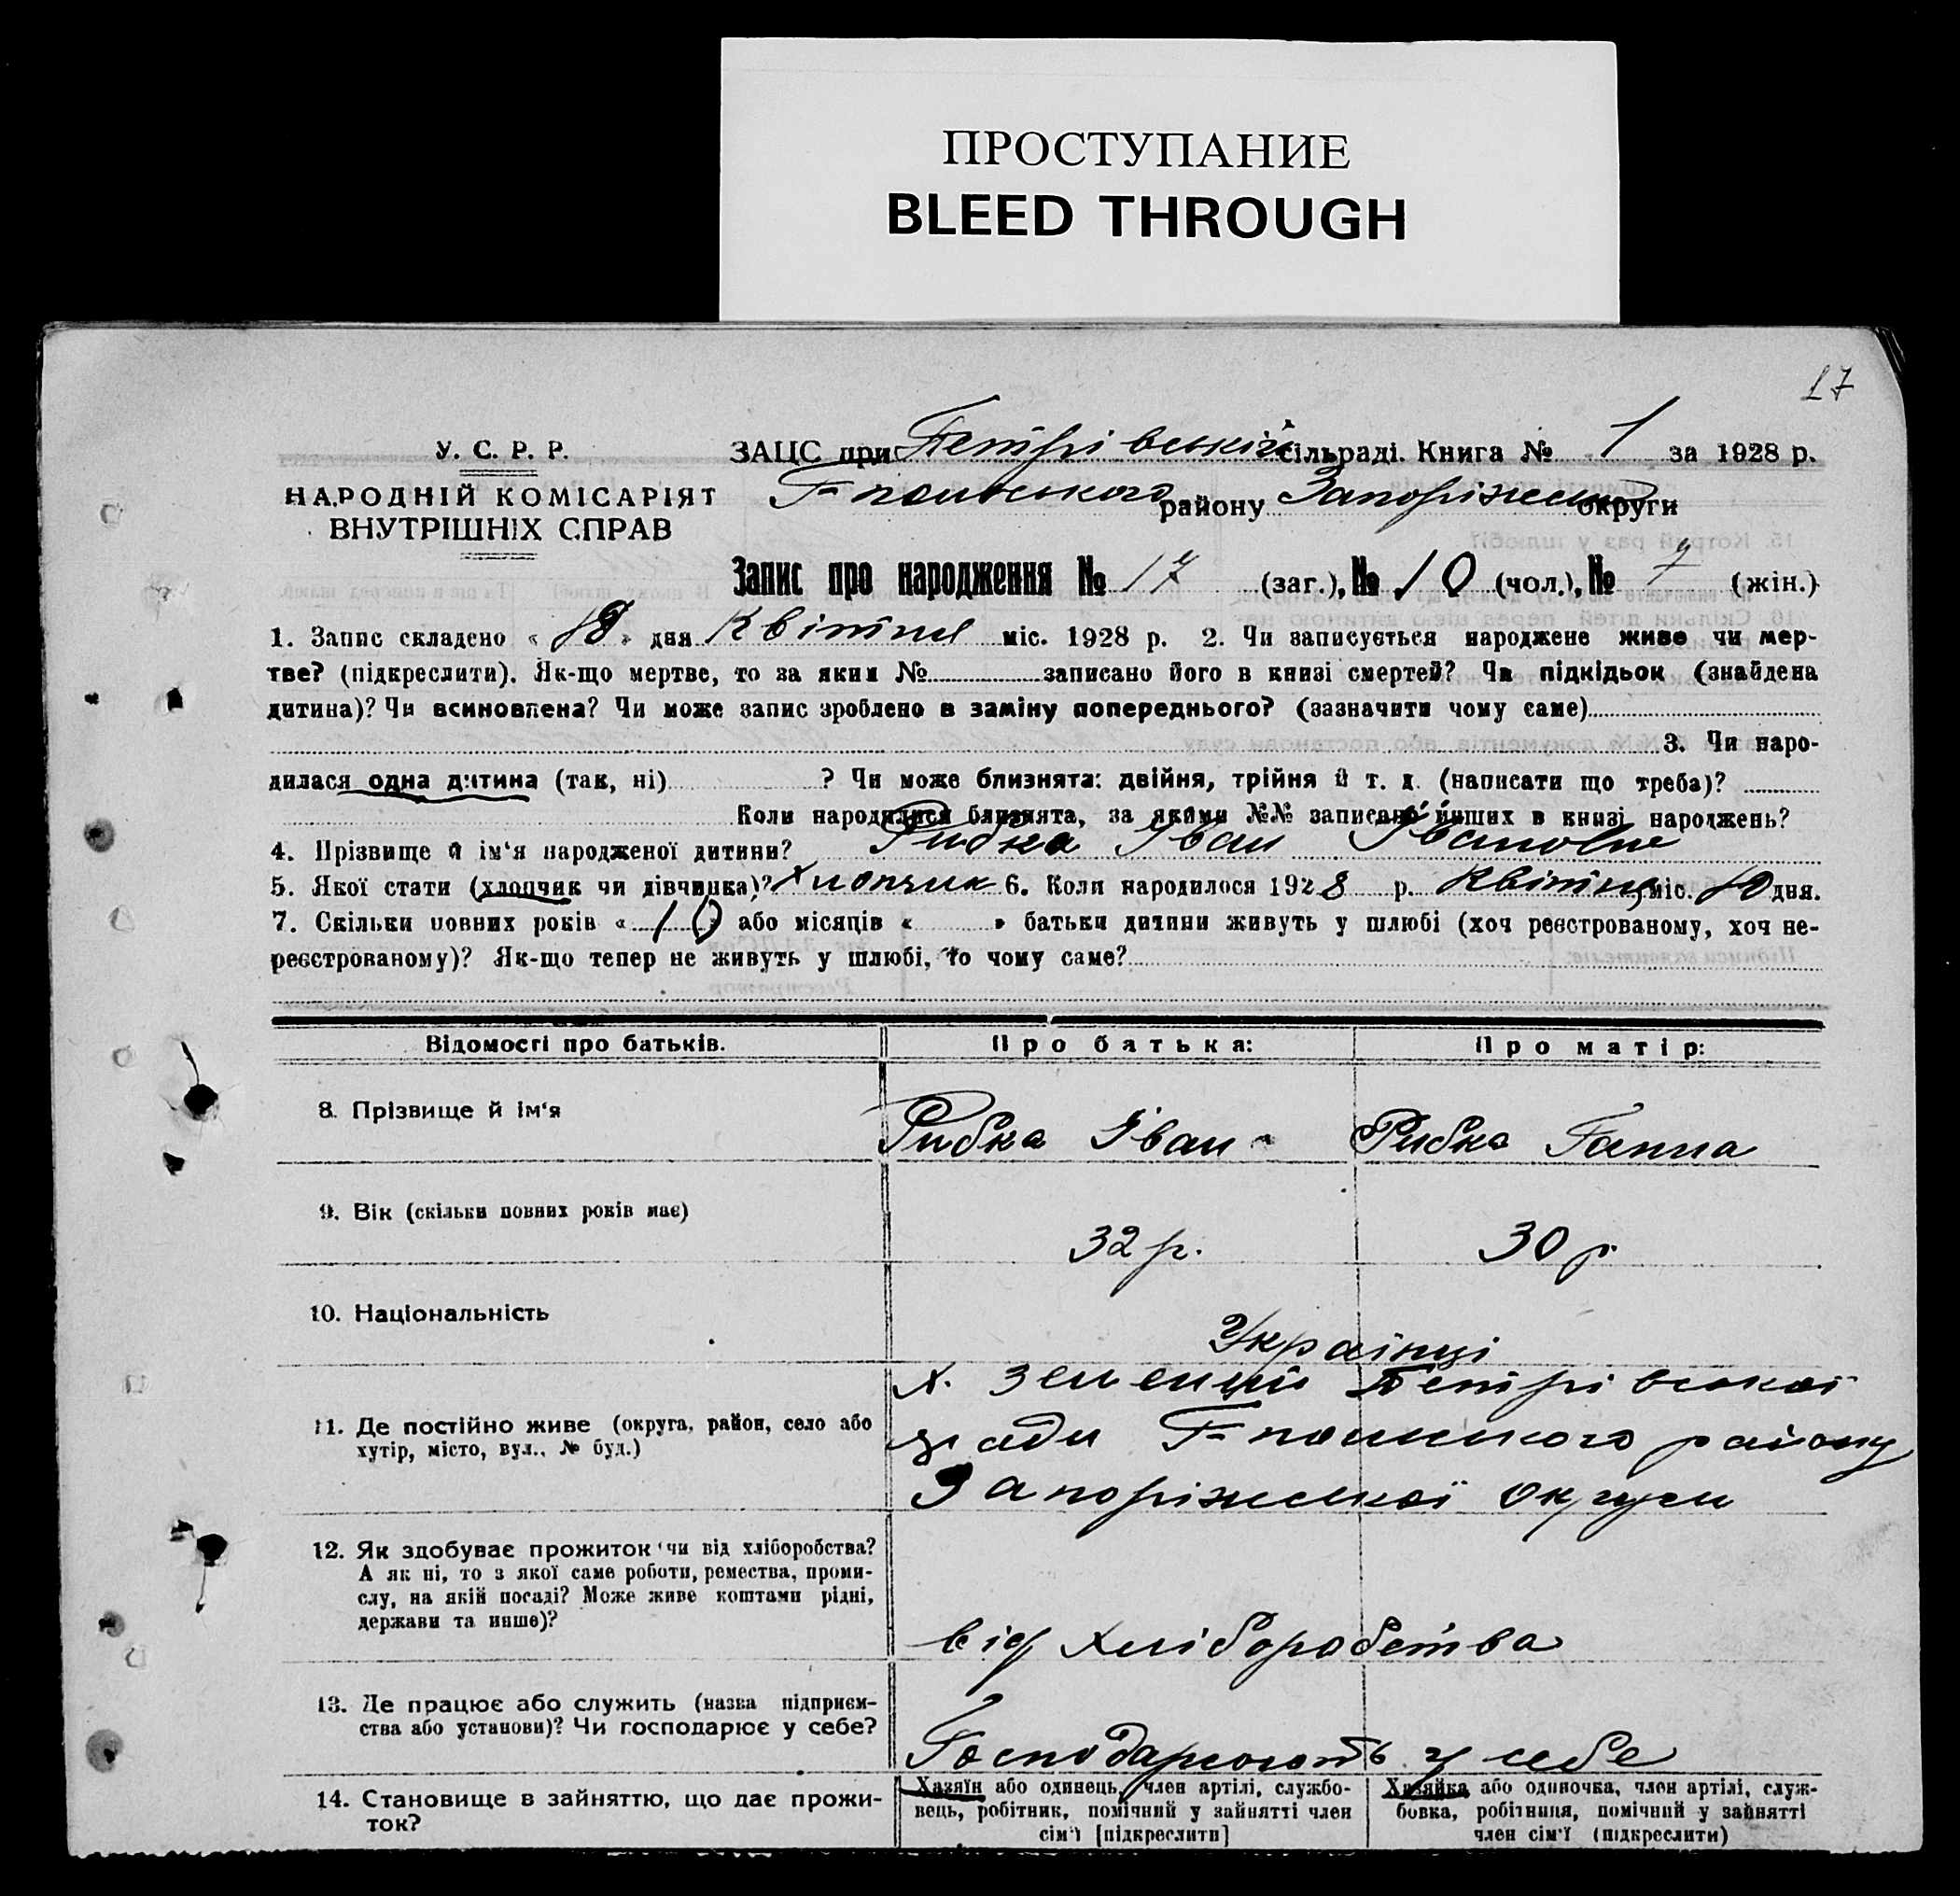 ПРОСТУПАНИЕ
BLEED THROUGH
17
У. С. Р. Р.
НАРОДНІЙ КОМІСАРІЯТ
ВНУТРІШНІХ СПРАВ
ЗАЦС при Петрівській сільраді. Книга № 1 за 1928 р.
району Запоріжської округи
Запис про народження № 17 (заг.), № 10 (чол.), № 7 (жін.)
1. Запис складено « 18 » дня Квітня міс. 1928 р. 2. Чи записується народжене живе чи мер-
тве? (підкреслити). Як-що мертве, то за яким № записано його в книзі смертей? Чи підкідьок (знайдена
дитина)? Чи всиновлена? Чи може запис зроблено в заміну попереднього? (зазначити чому саме)
3. Чи наро-
дилася одна дитина (так, ні) ? Чи може близнята: двійня, трійня й т. д. (написати що треба)?
Коли народилися близнята, за якими №№ записано инших в книзі народжень?
4. Прізвище й ім‘я народженої дитини? Рибка Іван Іванович
5. Якої стати (хлопчик чи дівчинка)? Хлопчик 6. Коли народилося 1928 р. Квітня міс. 10 дня.
7. Скільки повних років « 10 » або місяців « » батьки дитини живуть у шлюбі (хоч реєстрованому, хоч не-
реєстрованому)? Як-що тепер не живуть у шлюбі, то чому саме?
Відомості про батьків.
Про батька:
Про матір:
8. Прізвище й ім‘я
Рибка Іван
Рибка Ганна
9. Вік (скільки повних років має)
32 р.
30 р.
10. Національність
Українці
11. Де постійно живе (округа, район, село або
хутір, місто, вул., № буд.)
х. Петрівської
ради району
Запоріжської Округи
12. Як здобуває прожиток чи від хліборобства?
А як ні, то з якої саме роботи, ремества, проми-
слу, на якій посаді? Може живе коштами рідні,
держави та инше)?
від хліборобства
13. Де працює або служить (назва підприєм-
ства або установи)? Чи господарює у себе?
Господарюють у себе
14. Становище в зайняттю, що дає прожи-
ток?
Хазяїн або одинець, член артілі, службо-
вець, робітник, помічний у зайнятті член
сім‘ї [підкреслити]
Хазяйка або одиночка, член артілі, служ-
бовка, робітниця, помічний у зайнятті
член сім‘ї (підкреслити)